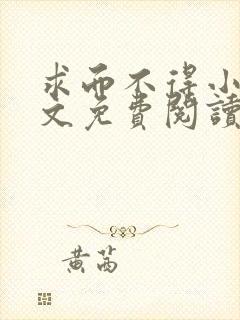 求而不得小
文免費閱讀
黄芮